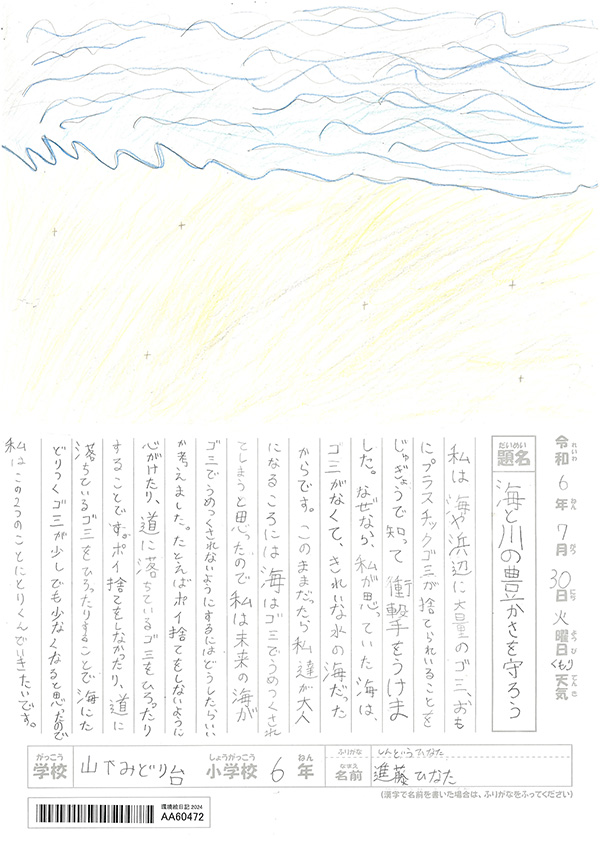 令和6年7月30日火曜日くもり天気
れいわ ねん がつ にち ようび てんき
だいめい
題名 海と川の豊かさを守ろう
私は海や浜辺に大量のゴミ、おも
にプラスチックゴミが捨てられいることを
じゅぎょうで知って衝撃をうけま
した。なぜなら、私が思っていた海は、
ゴミがなくて、きれいな水の海だった
からです。このままだったら私達が大人
になるころには海はゴミでうめつくされ
てしまうと思ったので私は未来の海が
ゴミでうめつくされないようにするにはどうしたらいい
か考えました。たとえばポイ捨てをしないように
心がけたり、道に落ちているゴミをひろったり
することです。ポイ捨てをしなかったり、道に
落ちているゴミをひろったりすることで海にた
どりつくゴミが少しでも少なくなると思ったので
私はこの2つのことにとりくんでいきたいです。
がっこう しょうがっこう ねん
学校 山下みどり台 小学校 6年
ふりがな しんどうひなた
なまえ
名前 進藤ひなた
(漢字で名前を書いた場合は、ふりがなをふってください)
環境絵日記2024
AA60472